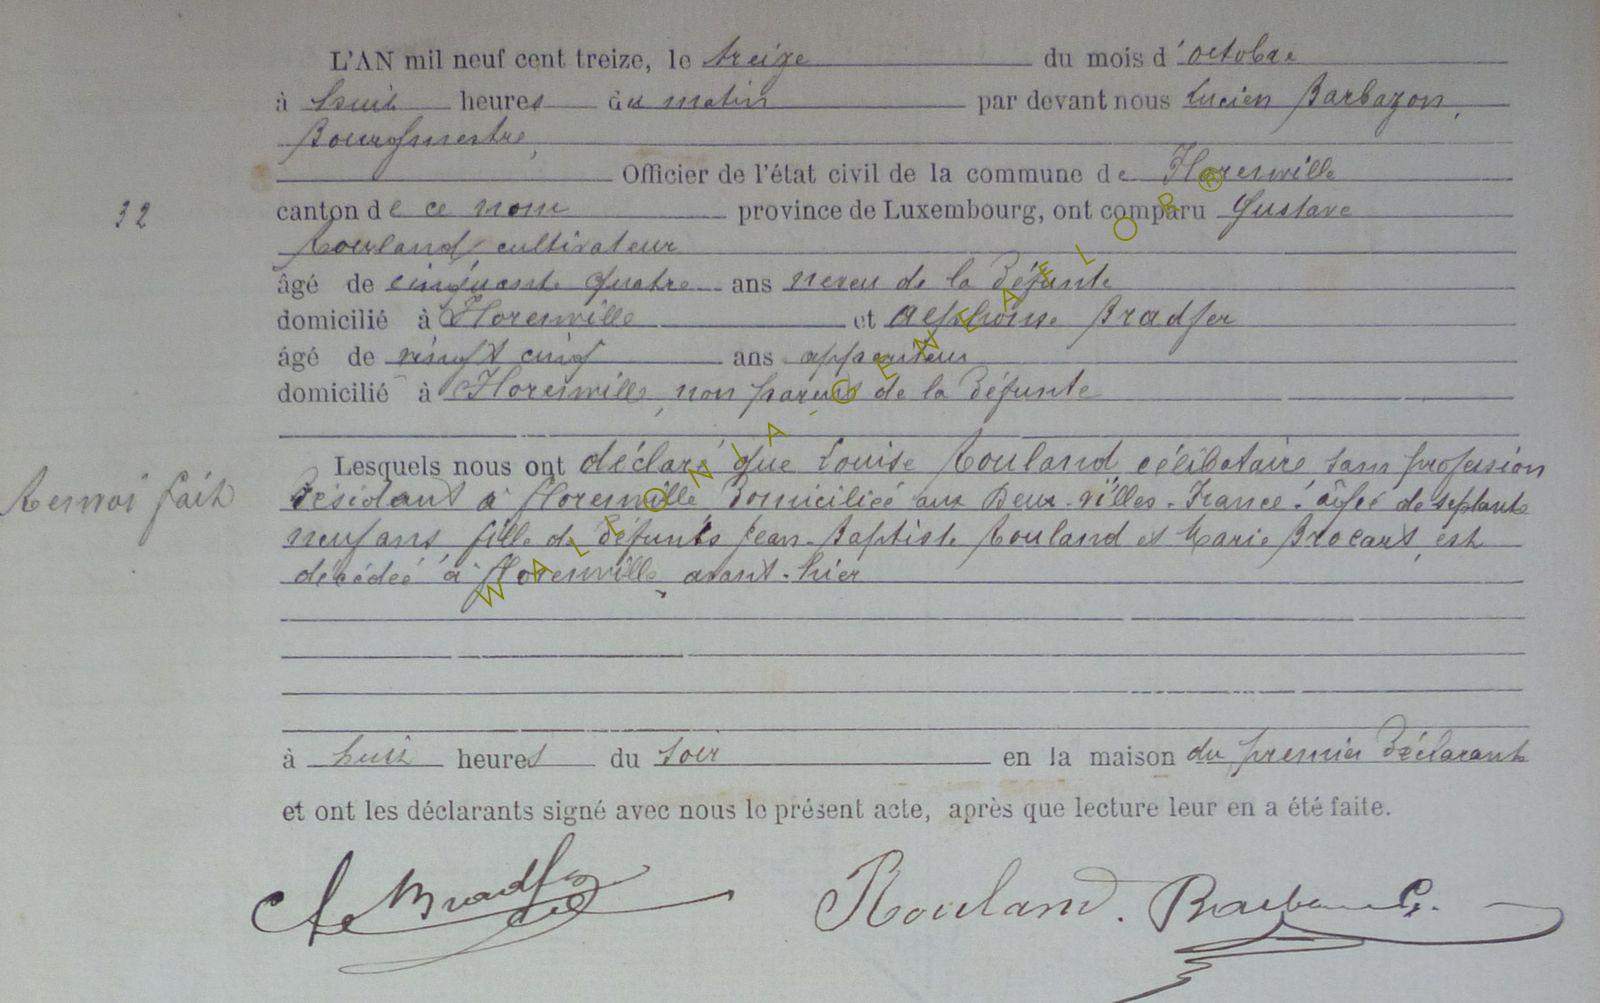 L'AN mil neuf cent treize, le treize du mois d'octobre
à huit heures du matin par devant nous Lucien Barbazon,
Bourgmestre,
Officier de l'état civil de la commune de Florenville
32
canton de ce nom province de Luxembourg, ont comparu Gustave
Rouland, cultivateur
âgé de cinquante quatre ans neveu de la Défunte
domicilié à Florenville et Alphonse Bradfer
âgé de vingt cinq ans appariteur
domicilié à Florenville, non parent de la Défunte
Lesquels nous ont déclaré que Louise Rouland, célibataire sans profession
Renvoi fait
Résidant à Florenville, Domiciliée aux Deux-villes-France, âgée de septante
neuf ans, fille de Défunts Jean-Baptiste Rouland et Marie Brocart, est
décédée à Florenville, avant-hier
à huit heures du soir en la maison du premier Déclarant
et ont les déclarants signé avec nous le présent acte, après que lecture leur en a été faite.
A Bradfer Rouland.
WALLONIA-GENEAFLOR®